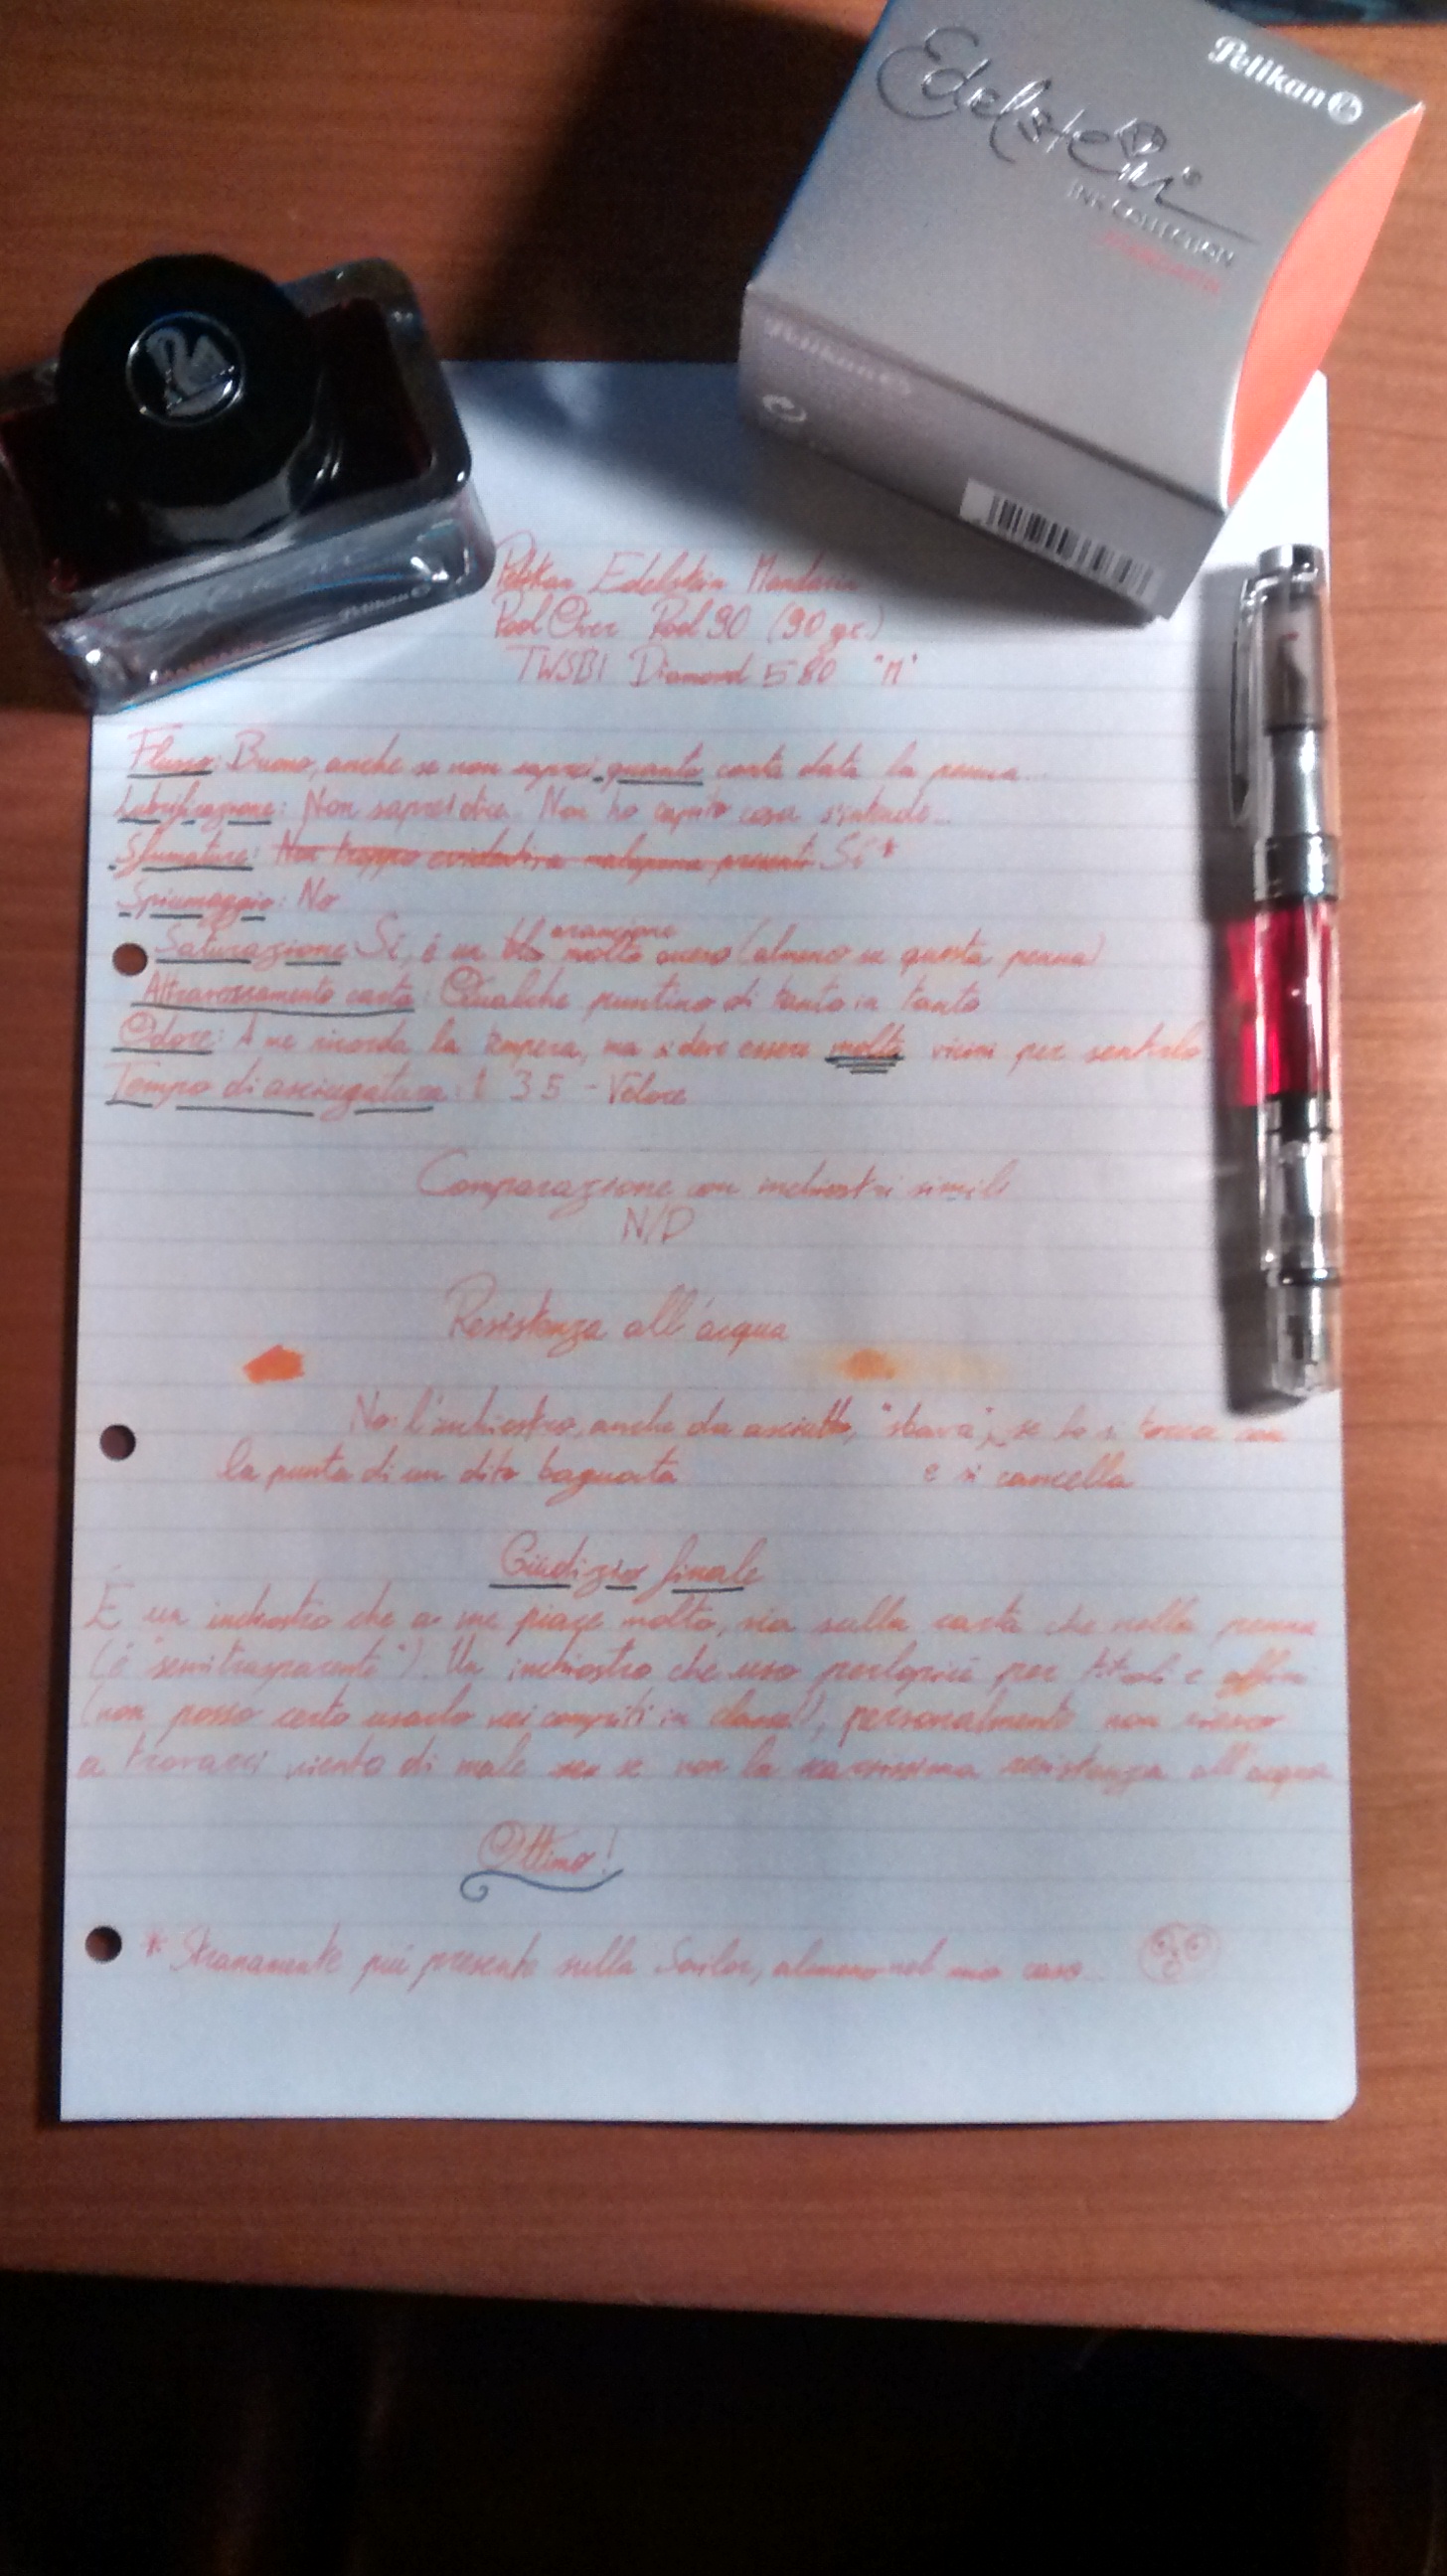 Pelikan
Edelstein
INK COLLECTION
Mandarin
Pelikan
Pelikan
Pelikan Edelstein Mandarin
Pool Over Pool 90 (90 gr.)
TWSBI Diamond 580 "M"
Flusso: Buono, anche se non saprei quanto conta data la penna...
Lubrificazione: Non saprei dire. Non ho capito cosa s'intende...
Sfumature: Non troppo evidenti, malapena presenti Sí*
Spiumaggio: No
Saturazione Sí, é un arancione molto acceso (almeno su questa penna)
Attraversamento carta: Qualche puntino di tanto in tanto
Odore: A me ricorda la tempera, ma si deve essere molto vicini per sentirlo
Tempo di asciugatura: 35 - Veloce
Comparazione con inchiostri simili
N/D
Resistenza all'acqua
No l'inchiostro, anche da asciutto, "sbava", se lo si tocca con
la punta di un dito bagnata e si cancella
Giudizio finale
É un inchiostro che a me piace molto, sia sulla carta che nella penna
(é "semitrasparente"). Un inchiostro che uso perlopiú per titoli e affini
(non posso certo usarlo nei compiti in classe!), personalmente non riesco
a trovarci niente di male se non la scarsissima resistenza all'acqua
Ottimo!
* Stranamente piú presente sulla Sailor, almeno nel mio caso...